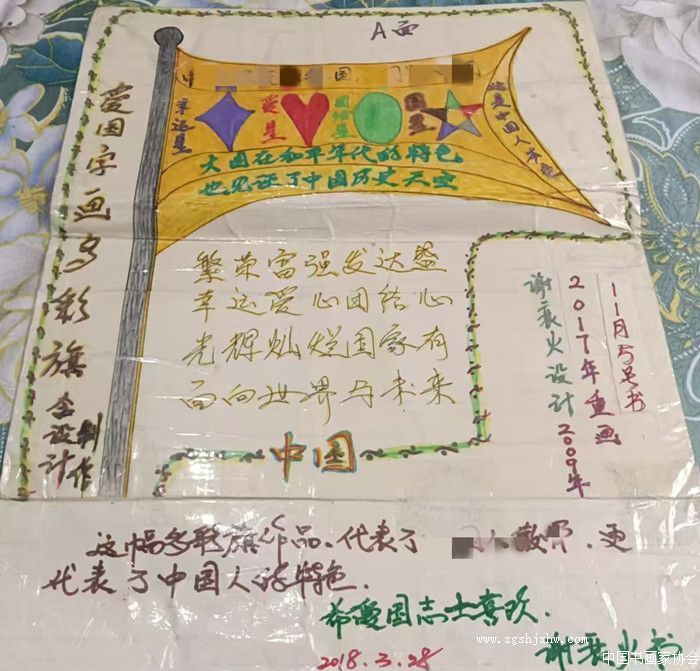 A面
爱国字画多彩旗全设计制作
幸运星
爱星
团结星
国星
大国在和平年代的特色
也见证了中国历史天空
这是中国人
繁荣富强发达盛
幸运爱心团结心
光辉灿烂国家有
面向世界与未来
中国
11月5号书
2017年重画
谢表火设计2009年
这幅多彩旗作品、代表了
更
代表了中国人的特色.
希爱国志士喜欢.
2018.3.28
www.zgshjxhw.com
中国书画家协会